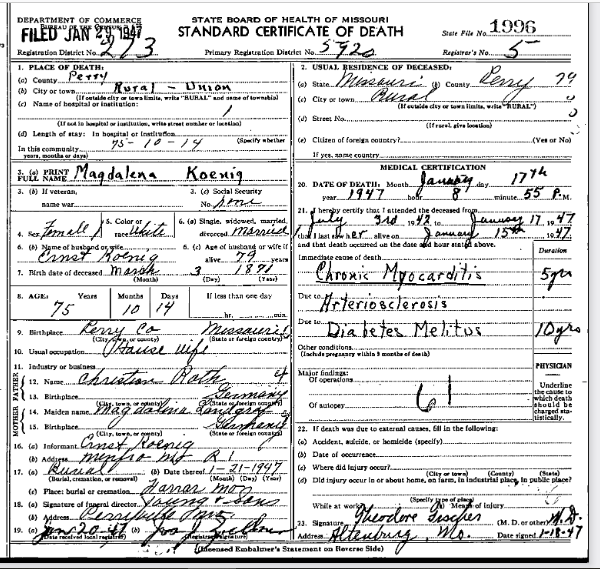 DEPARTMENT OF COMMERCE
FILED JAN 29 1947
STATE BOARD OF HEALTH OF MISSOURI
STANDARD CERTIFICATE OF DEATH
State File No. 1996
Registration District No. 273
Primary Registration District No. 5920
Registrar's No. 5
1. PLACE OF DEATH:
(a) County Perry
(b) City or town Rural - Union
(If outside city or town limits, write "RURAL" and name of township)
(c) Name of hospital or institution:
(If not in hospital or institution, write street number or location)
(d) Length of stay: In hospital or institution
(Specify whether
In this community 75-10-14
years, months or days)
2. USUAL RESIDENCE OF DECEASED:
(a) State Missouri (b) County Perry 79
(c) City or town Rural
(If outside city or town limits, write "RURAL")
(d) Street No.
(If rural, give location)
(e) Citizen of foreign country? (Yes or No)
If yes, name country
3. (a) PRINT FULL NAME Magdalena Koenig
3. (b) If veteran, name war
3. (c) Social Security No. none
4. Sex Femall
5. Color or race White
6. (a) Single, widowed, married, divorced Married
6. (b) Name of husband or wife Ernst Koenig
6. (c) Age of husband or wife if alive 79 years
7. Birth date of deceased March 3 1871
(Month) (Day) (Year)
8. AGE: Years Months Days If less than one day
75 10 14 hr. min.
9. Birthplace Perry Co Missouri
(City, town, or county) (State or foreign country)
10. Usual occupation House wife
11. Industry or business
MOTHER FATHER
12. Name Christian Roth
13. Birthplace Germany
(City, town, or county) (State or foreign country)
14. Maiden name Magdalina
15. Birthplace Germany
(City, town, or county) (State or foreign country)
16. (a) Informant Ernst Koenig
(b) Address Menfro Mo R 1
17. (a) Burial (b) Date thereof 1-21-1947
(Burial, cremation, or removal) (Month) (Day) (Year)
(c) Place: burial or cremation Farrar Mo
18. (a) Signature of funeral director Young & Sons
(b) Address Perryville
19. (a) Jan 20-47 (b)
(Date received local registrar) (Registrar's signature)
MEDICAL CERTIFICATION
20. DATE OF DEATH: Month January day 17th
year 1947 hour 8 minute 55 P.M.
21. I hereby certify that I attended the deceased from
July 3rd 1942 to January 17 1947
that I last saw her alive on January 15th 1947
and that death occurred on the date and hour stated above.
Duration
Immediate cause of death
Chronic Myocarditis 5 yrs
Due to
Arteriosclerosis
Due to
Diabetes Melitus 10 yrs
Other conditions
(Include pregnancy within 3 months of death)
PHYSICIAN
Major findings:
Of operations
Of autopsy
61
Underline the cause to which death should be charged statistically.
22. If death was due to external causes, fill in the following:
(a) Accident, suicide, or homicide (specify)
(b) Date of occurrence
(c) Where did injury occur?
(City or town) (County) (State)
(d) Did injury occur in or about home, on farm, in industrial place, in public place?
(Specify type of place)
While at work? (e) Means of injury
23. Signature Theodore Fischer (M. D. or other) M.D.
Address Altenburg, Mo. Date signed 1-18-47
(Licensed Embalmer's Statement on Reverse Side)